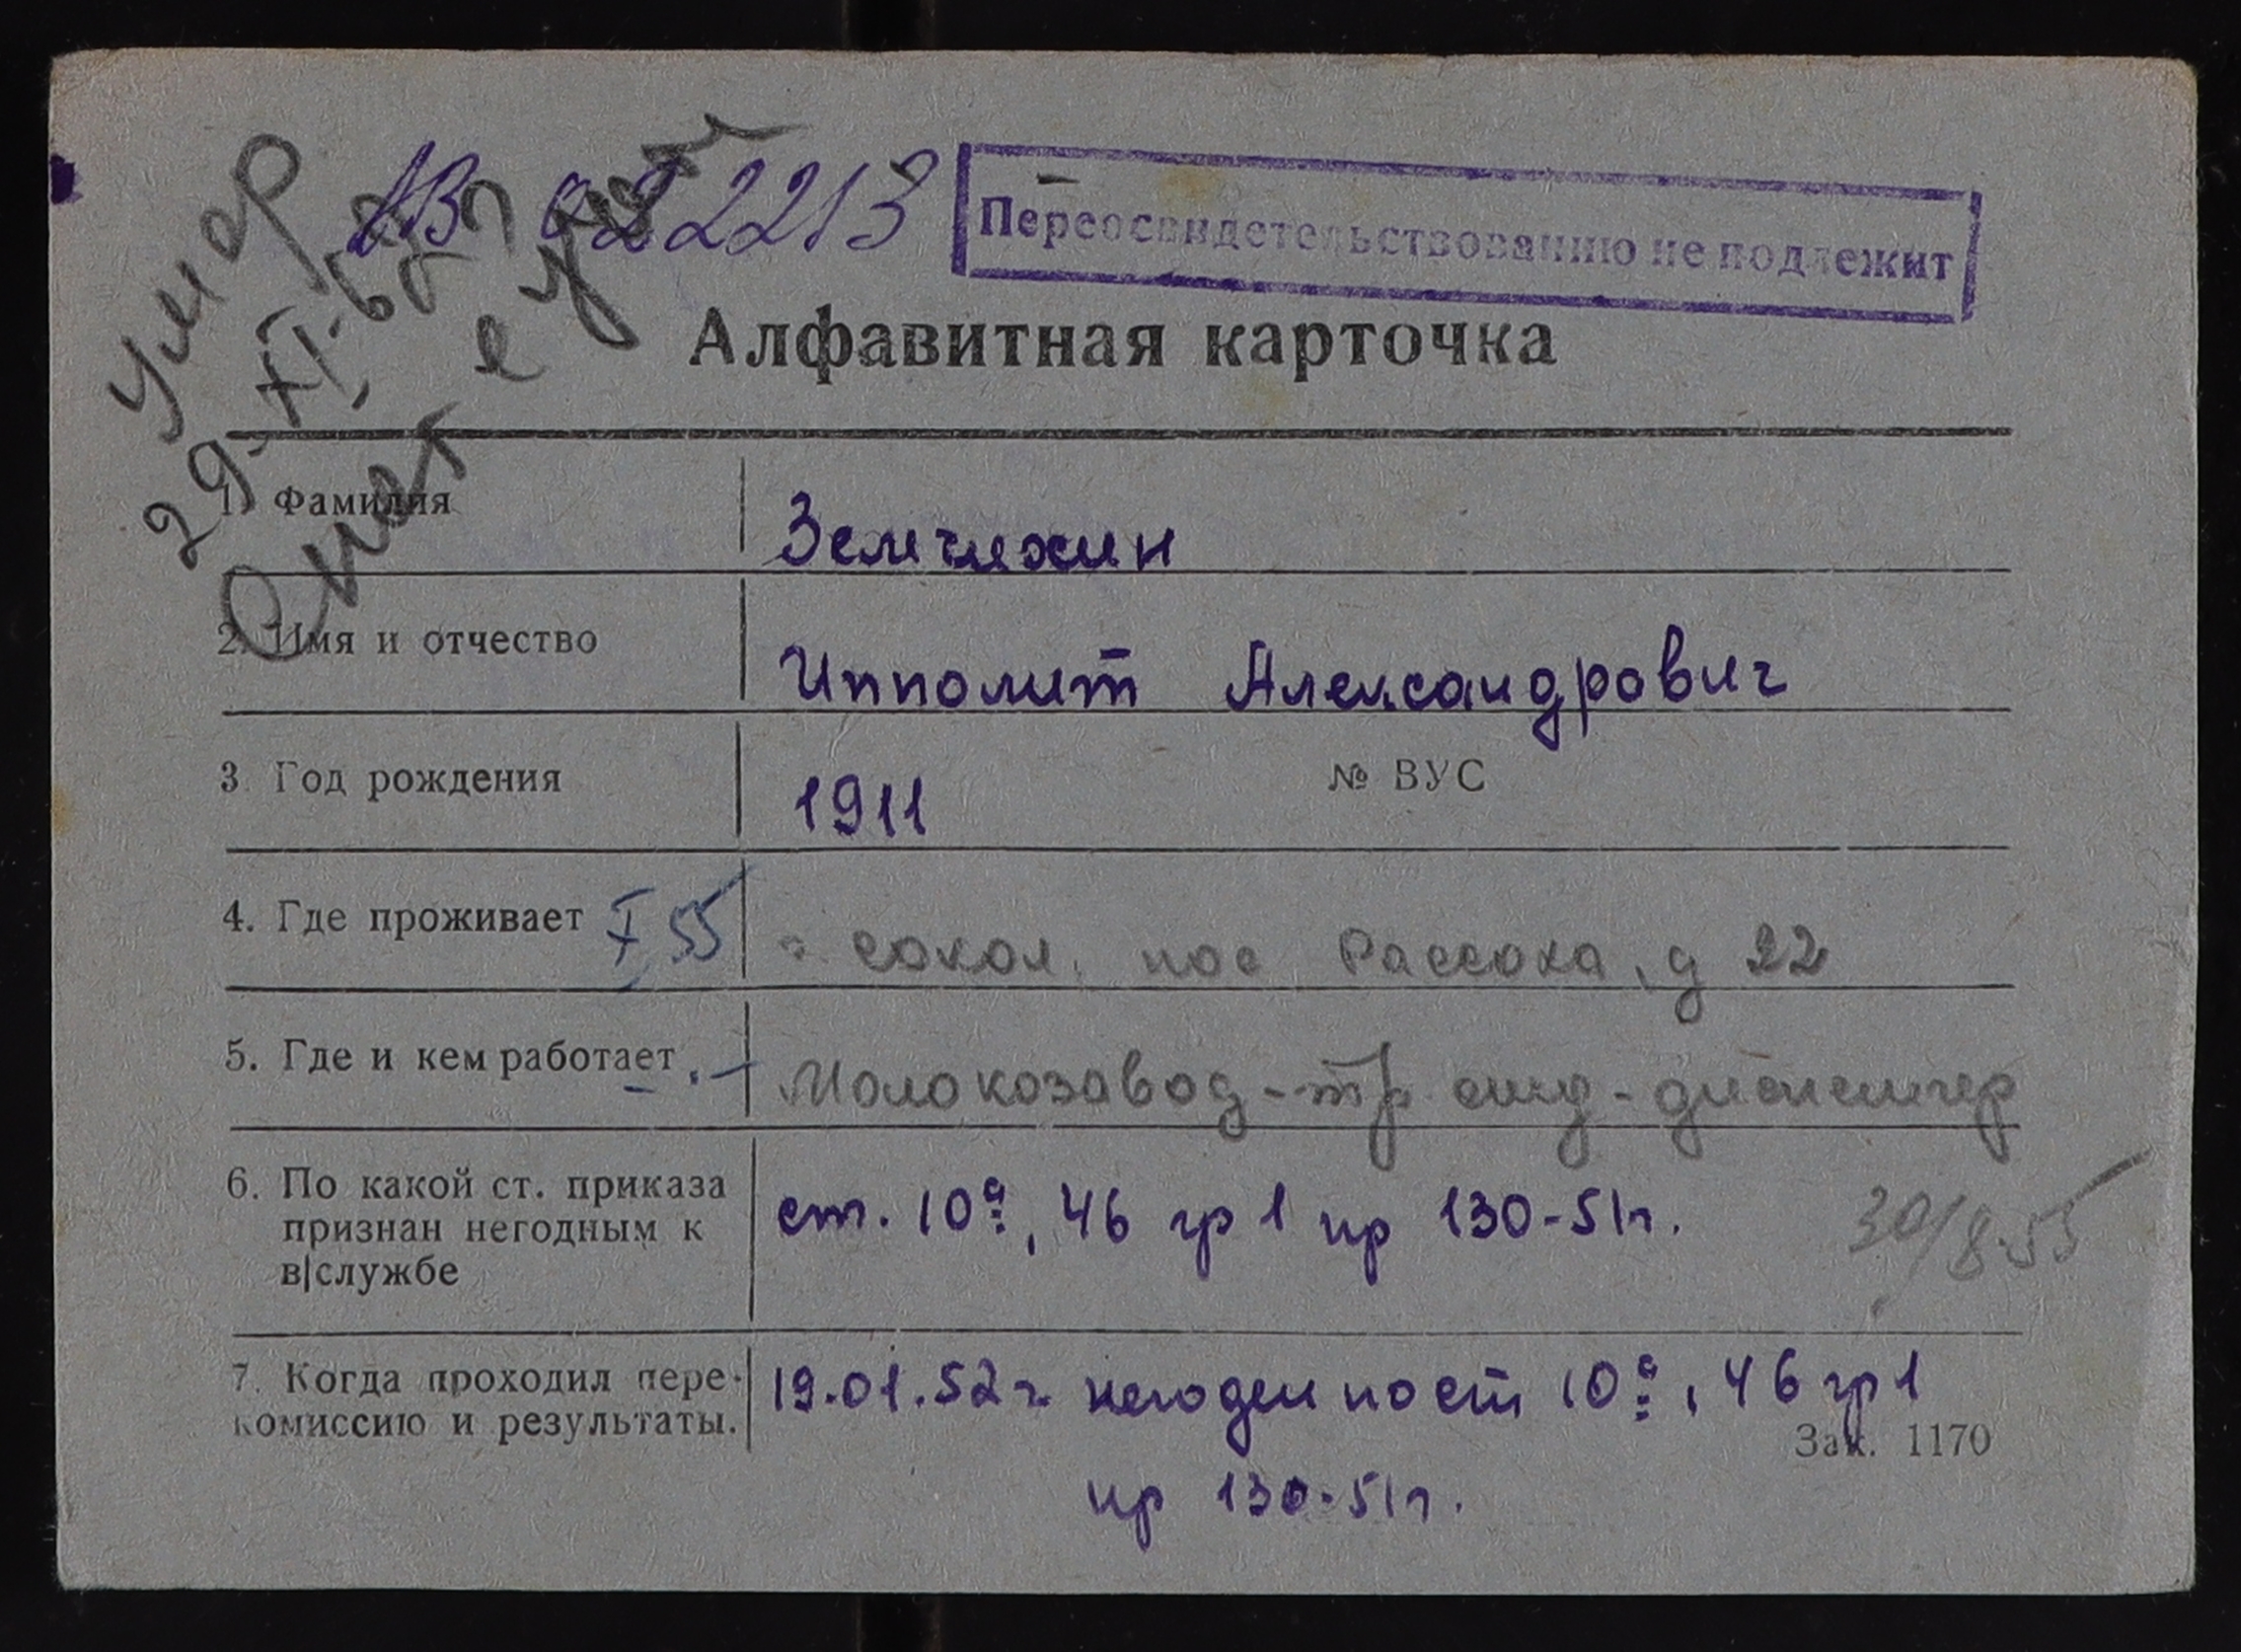 Умер
29.XI.65 г
Снят с уч
АВ 022213
Переосвидетельствованию не подлежит
Алфавитная карточка
1. Фамилия Земчихин
2. Имя и отчество Ипполит Александрович
3. Год рождения 1911 № ВУС
4. Где проживает I 55 г. Сокол, пос Рассоха, д 22
5. Где и кем работает Молокозавод-
6. По какой ст. приказа ст. 10а, 46 гр 1 пр 130-51г. 30/8.55
признан негодным к
в|службе
7. Когда проходил пере- 19.01.52 г. негоден по ст 10а, 46 гр 1
комиссию и результаты. пр 130-51г.
Зак. 1170